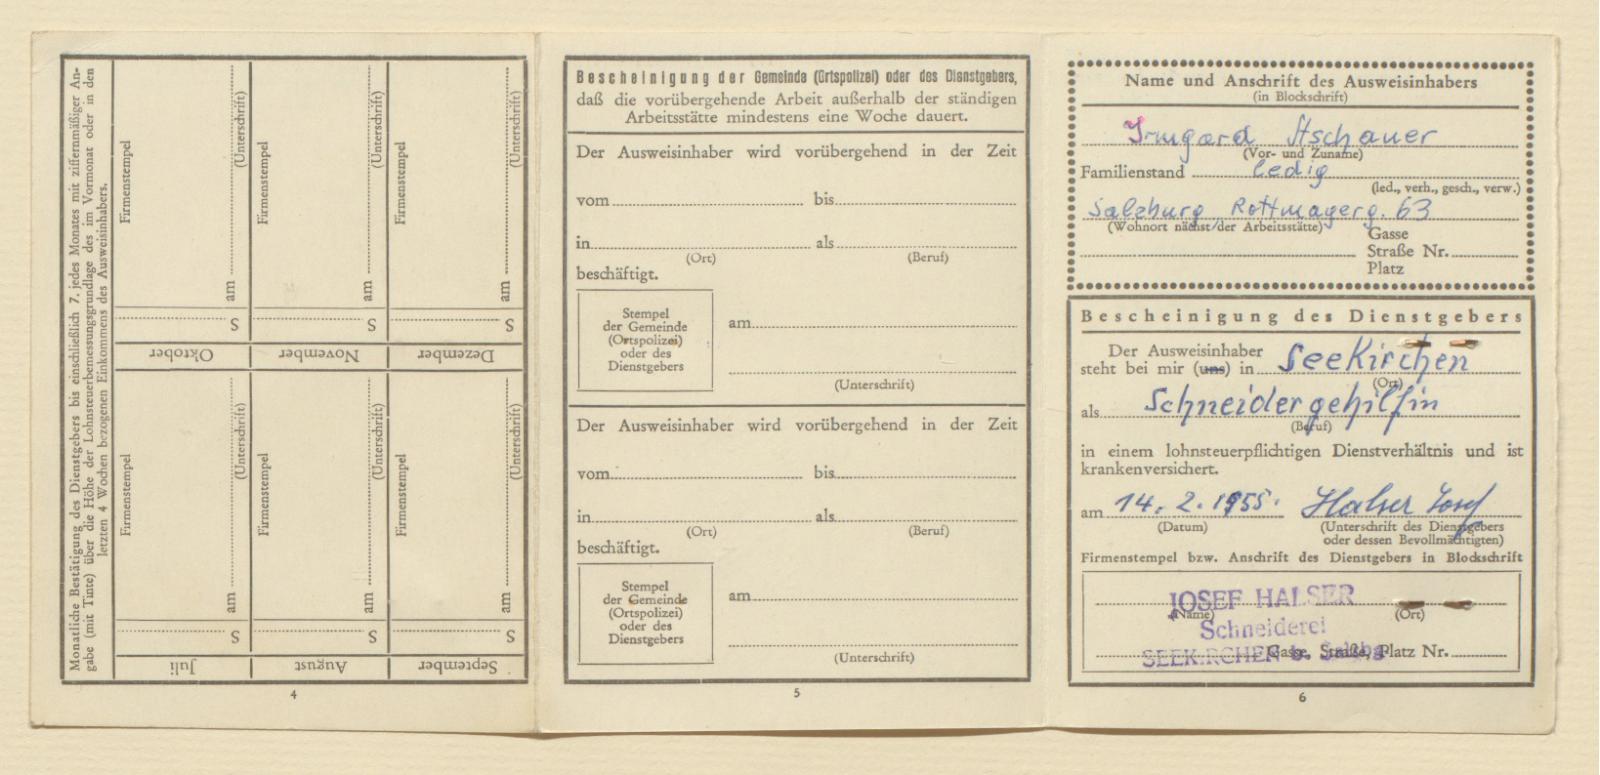 Monatliche Bestätigung des Dienstgebers bis einschließlich 7. jedes Monates mit ziffernmäßiger An-
gabe (mit Tinte) über die Höhe der Lohnsteuerbemessungsgrundlage des im Vormonat oder in den
letzten 4 Wochen bezogenen Einkommens des Ausweisinhabers.
Firmenstempel
am
(Unterschrift)
S
Oktober
Firmenstempel
am
(Unterschrift)
S
November
Firmenstempel
am
(Unterschrift)
S
Dezember
Firmenstempel
am
(Unterschrift)
S
Juli
Firmenstempel
am
(Unterschrift)
S
August
Firmenstempel
am
(Unterschrift)
S
September
4
Bescheinigung der Gemeinde (Ortspolizei) oder des Dienstgebers,
daß die vorübergehende Arbeit außerhalb der ständigen
Arbeitsstätte mindestens eine Woche dauert.
Der Ausweisinhaber wird vorübergehend in der Zeit
vom bis
in als
(Ort) (Beruf)
beschäftigt.
Stempel
der Gemeinde
(Ortspolizei)
oder des
Dienstgebers
am
(Unterschrift)
Der Ausweisinhaber wird vorübergehend in der Zeit
vom bis
in als
(Ort) (Beruf)
beschäftigt.
Stempel
der Gemeinde
(Ortspolizei)
oder des
Dienstgebers
am
(Unterschrift)
5
Name und Anschrift des Ausweisinhabers
(in Blockschrift)
Irmgard Aschauer
(Vor- und Zuname)
Familienstand ledig
(led., verh., gesch., verw.)
Salzburg, Rottmayerg. 63
(Wohnort nächst der Arbeitsstätte) Gasse
Straße Nr.
Platz
Bescheinigung des Dienstgebers
Der Ausweisinhaber
steht bei mir (uns) in Seekirchen
(Ort)
als Schneidergehilfin
(Beruf)
in einem lohnsteuerpflichtigen Dienstverhältnis und ist
krankenversichert.
am 14. 2. 1955. Halser Josef
(Datum) (Unterschrift des Dienstgebers
oder dessen Bevollmächtigten)
Firmenstempel bzw. Anschrift des Dienstgebers in Blockschrift
JOSEF HALSER
(Name) (Ort)
Schneiderei
SEEKIRCHEN b. Salzbg.
Gasse, Straße, Platz Nr.
6